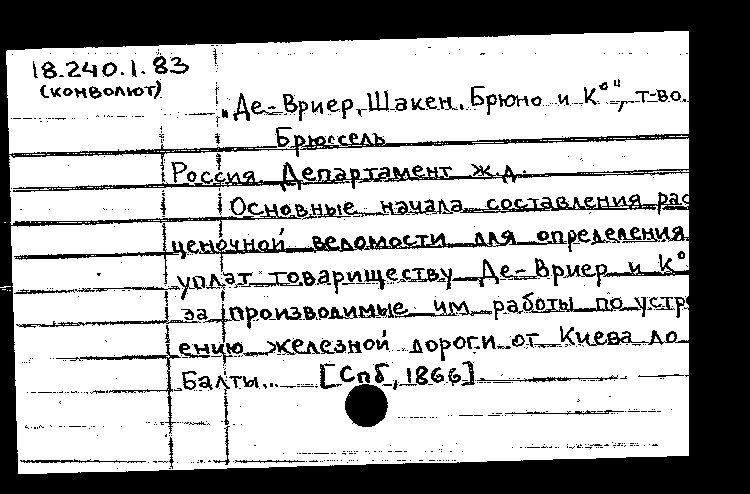 18.240.1.83
(конволют)
„Де-Вриер, Шакен, Брюно и К°", т-во.
Брюссель
Россия. Департамент ж.д.
Основные начала составления рас
ценочной ведомости для определения
уплат товариществу Де-Вриер и К°
за производимые им работы по устро
ению железной дороги от Киева до
Балты... [Спб, 1866].